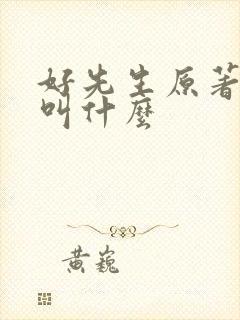 好先生原著
叫什麼
黄巍